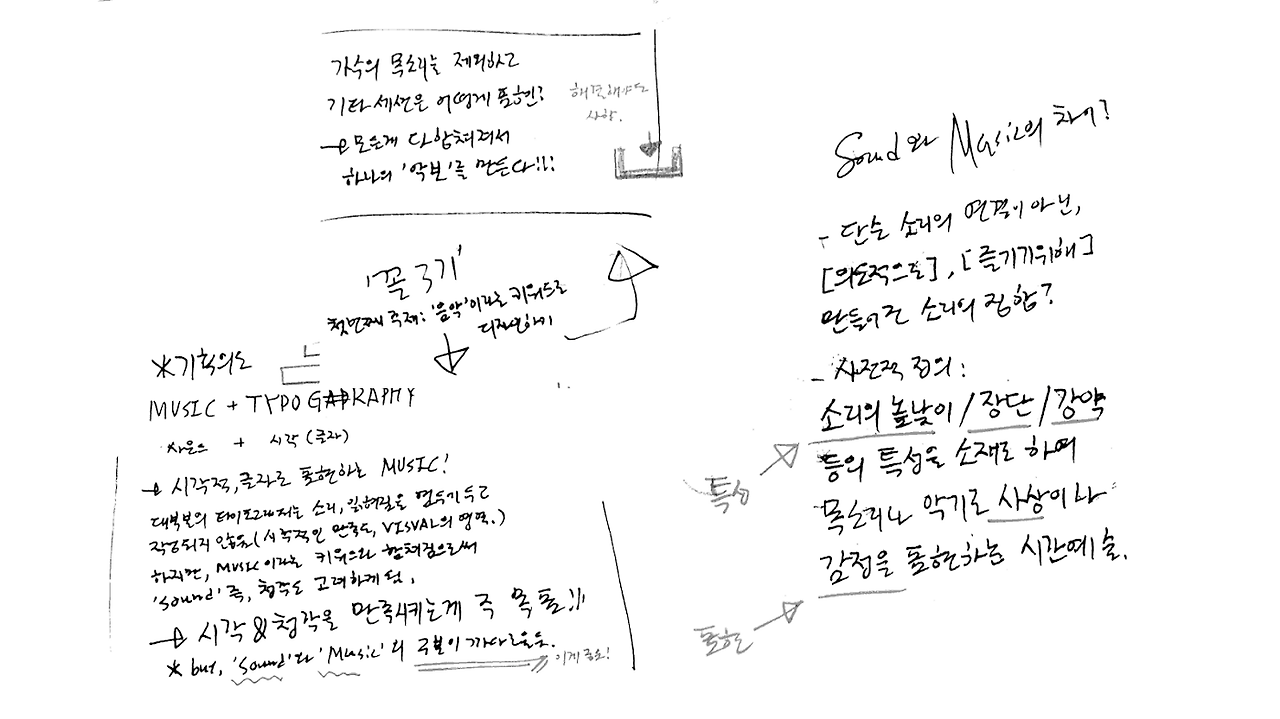 가수의 목소리는 제외하고
기타세션은 어떻게 표현?
→ 모든게 다 합쳐져서
하나의 '악보'를 만든다!!!
해결해야할
사항.
'꼴 3기'
첫번째 주제: '음악'이라는 키워드로
디자인하기
*기획의도
MUSIC + TYPOGRAPHY
사운드 + 시각(글자)
→ 시각적, 글자로 표현하는 MUSIC!
대부분의 타이포그래피는 소리, 읽혀짐을 염두에 두고
작업되지 않음(시각적인 만족도, VISUAL의 영역.)
하지만, MUSIC이라는 키워드와 합쳐짐으로써
'Sound' 즉, 청각도 고려하게 됨.
→ 시각&청각을 만족시키는게 즉 목표!!!
* but, 'Sound'와 'Music'의 구분이 까다로움.
이게 중요!
Sound와 Music의 차이?
- 단순 소리의 연결이 아닌,
[의도적으로], [즐기기위해]
만들어진 소리의 집합?
- 사전적 정의:
소리의 높낮이/장단/강약
등의 특성을 소재로 하여
목소리나 악기로 사상이나
감정을 표현하는 시간예술.
특성
표현